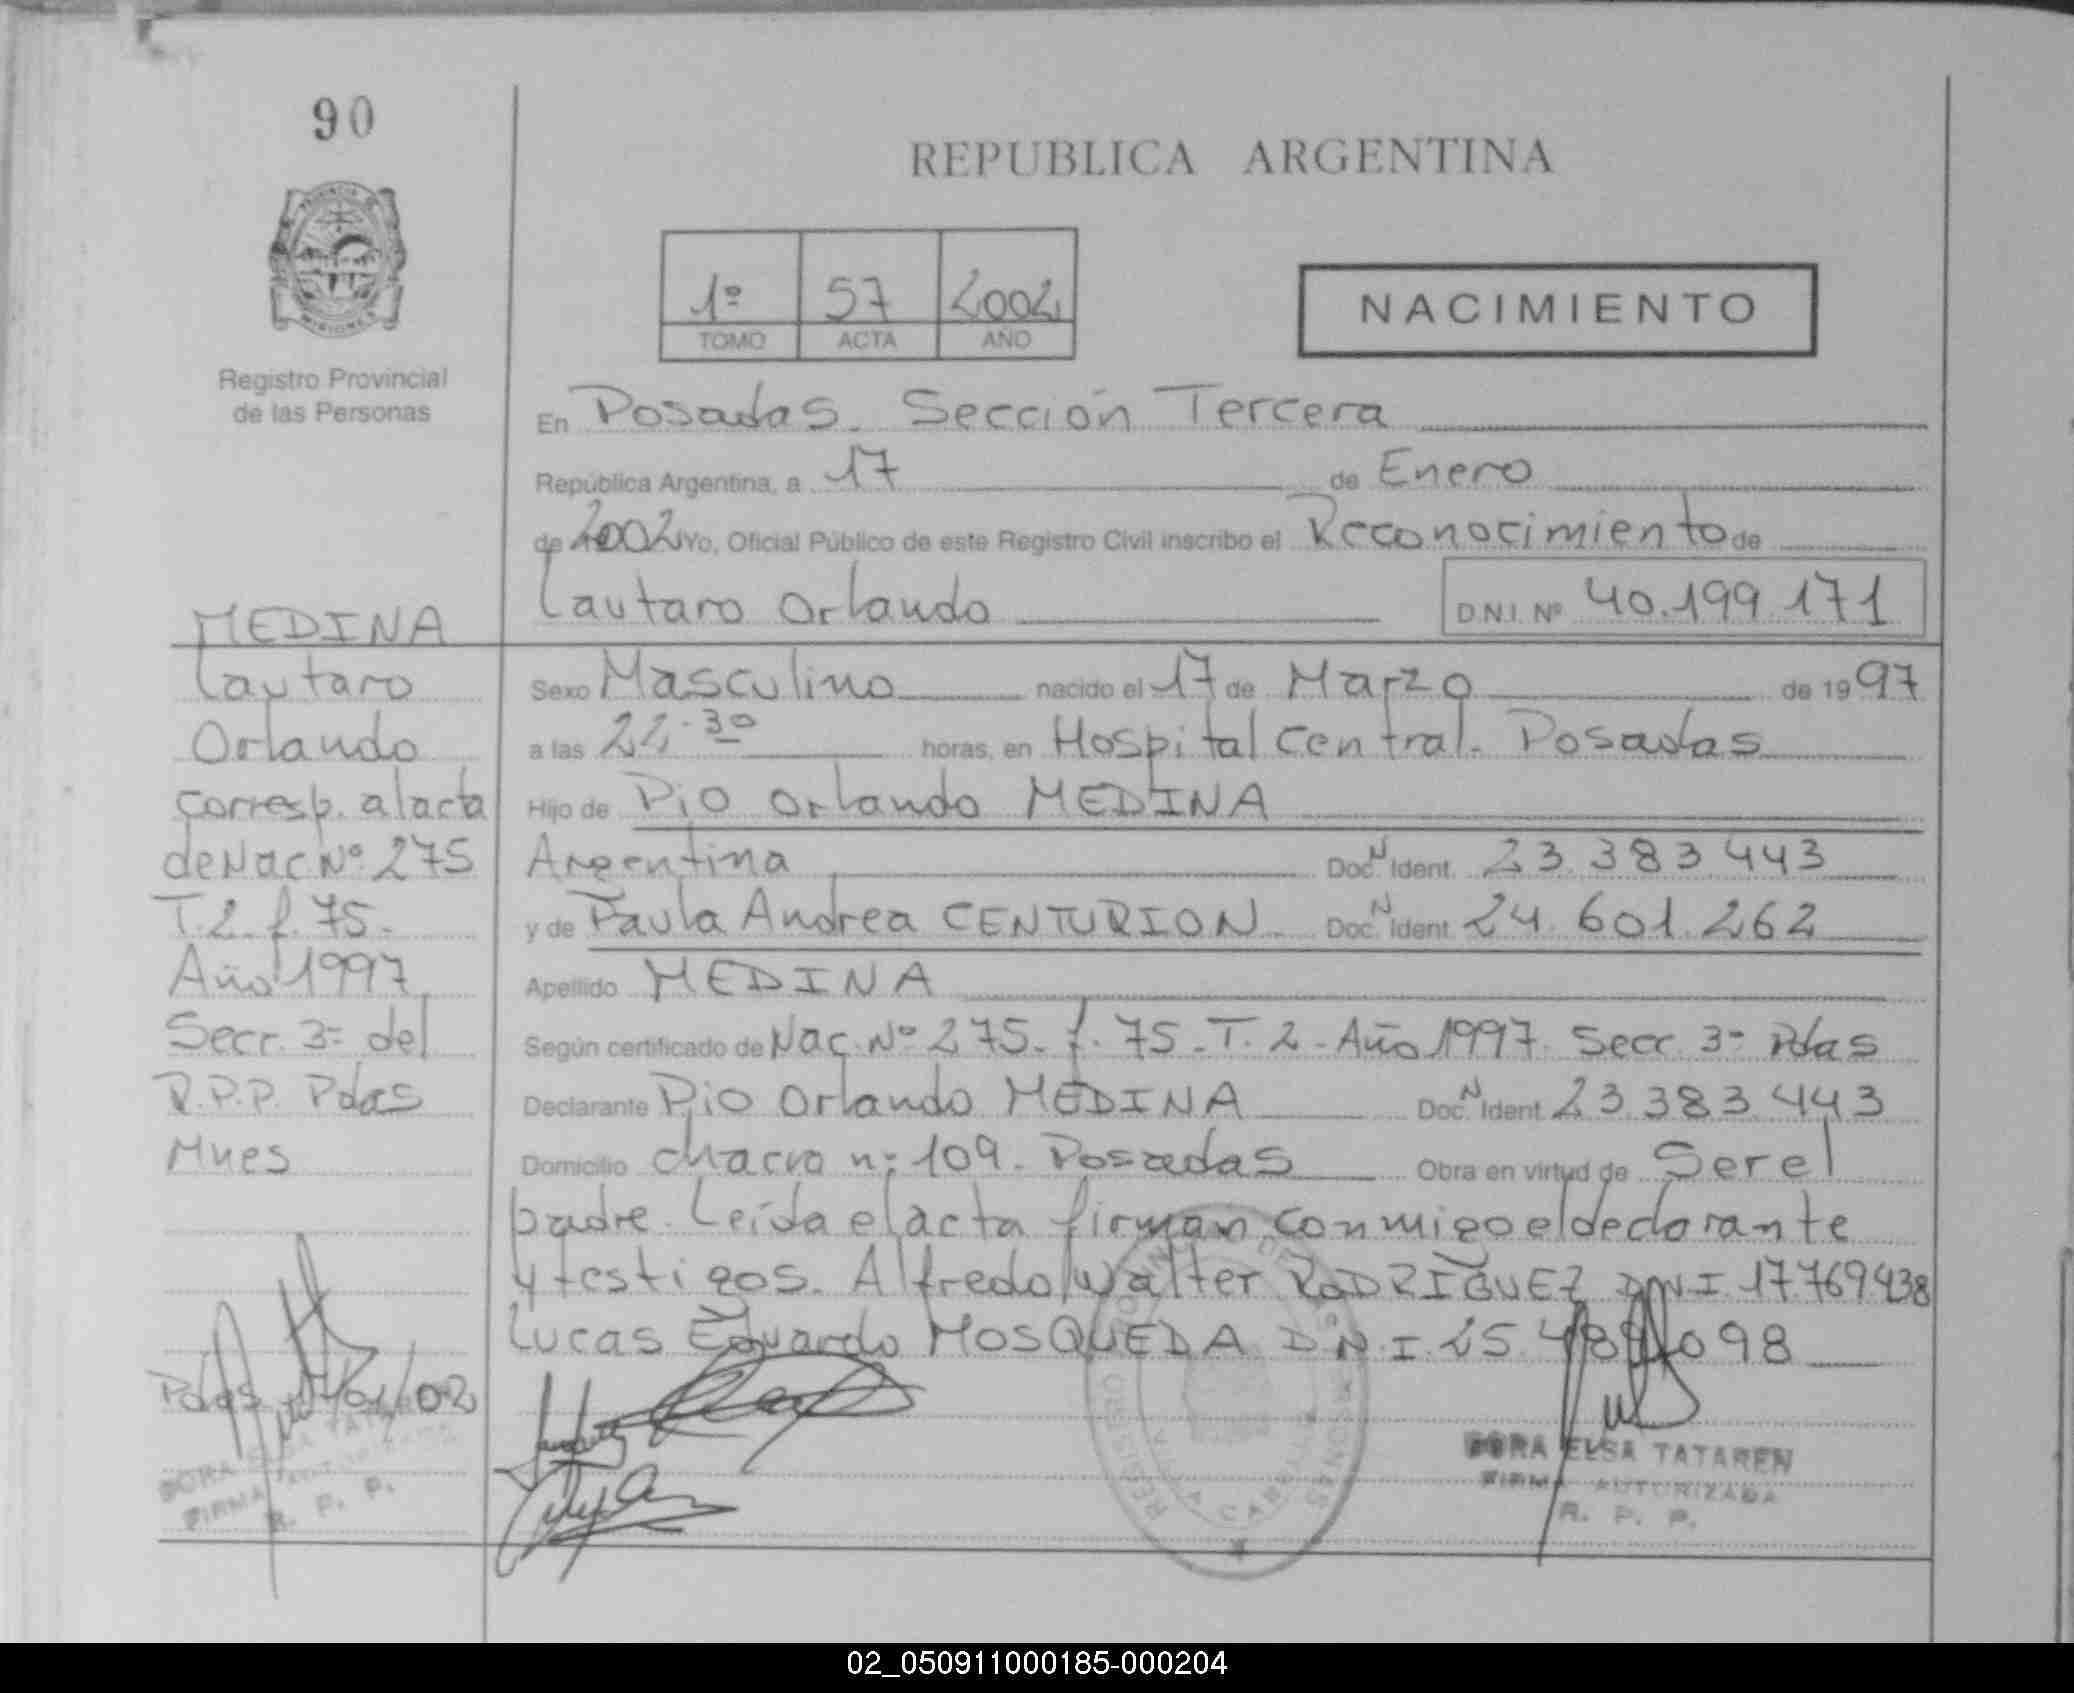 90
REPUBLICA ARGENTINA
1º 57 2002
TOMO ACTA AÑO
NACIMIENTO
Registro Provincial
de las Personas
En Posadas. Sección Tercera
República Argentina, a 17 de Enero
de 2002 Yo, Oficial Público de este Registro Civil inscribo el Reconocimiento de
Lautaro Orlando D.N.I. Nº 40.199.171
Sexo Masculino nacido el 17 de Marzo de 1997
a las 22-30 horas, en Hospital Central. Posadas
Hijo de Pio Orlando MEDINA
Argentina Doc. N Ident. 23.383.443
y de Paula Andrea CENTURION Doc. N Ident. 24.601.262
Apellido MEDINA
Según certificado de Nac. Nº 275. f. 75. T. 2 - Año 1997. Secc. 3º Pdas
Declarante Pio Orlando MEDINA Doc. N Ident. 23.383.443
Domicilio chacra nº 109. Posadas Obra en virtud de Ser el
padre. Leída el acta firman conmigo el declarante
y testigos. Alfredo Walter RODRIGUEZ D.N.I. 17.769.438
Lucas Eduardo MOSQUEDA D.N.I. 25.489.098
MEDINA
Lautaro
Orlando
corresp. al acta
de Nac Nº 275
T. 2 f. 75.
Año 1997
Secc. 3º del
R.P.P. Pdas
Mnes
Pdas /01/02
DORA ELSA TATAREN
FIRMA AUTORIZADA
R. P. P.
DORA ELSA TATAREN
FIRMA AUTORIZADA
R. P. P.
02_050911000185-000204